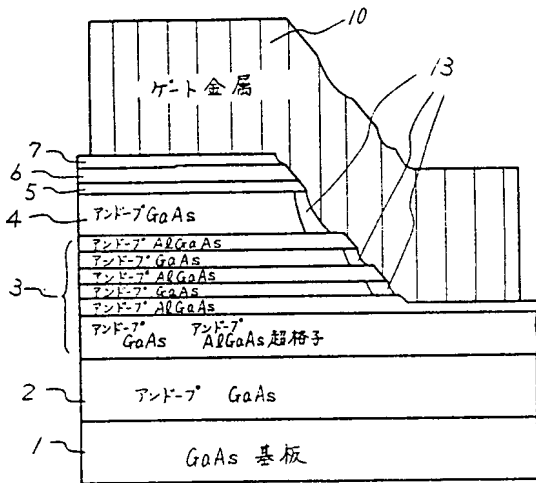 10
13
ゲート金属
7
6
5
4
アンドープGaAs
アンドープ AlGaAs
アンドープ GaAs
アンドープ AlGaAs
3
アンドープ GaAs
アンドープ AlGaAs
アンドープ アンドープ
GaAs AlGaAs超格子
2
アンドープ GaAs
1
GaAs 基板